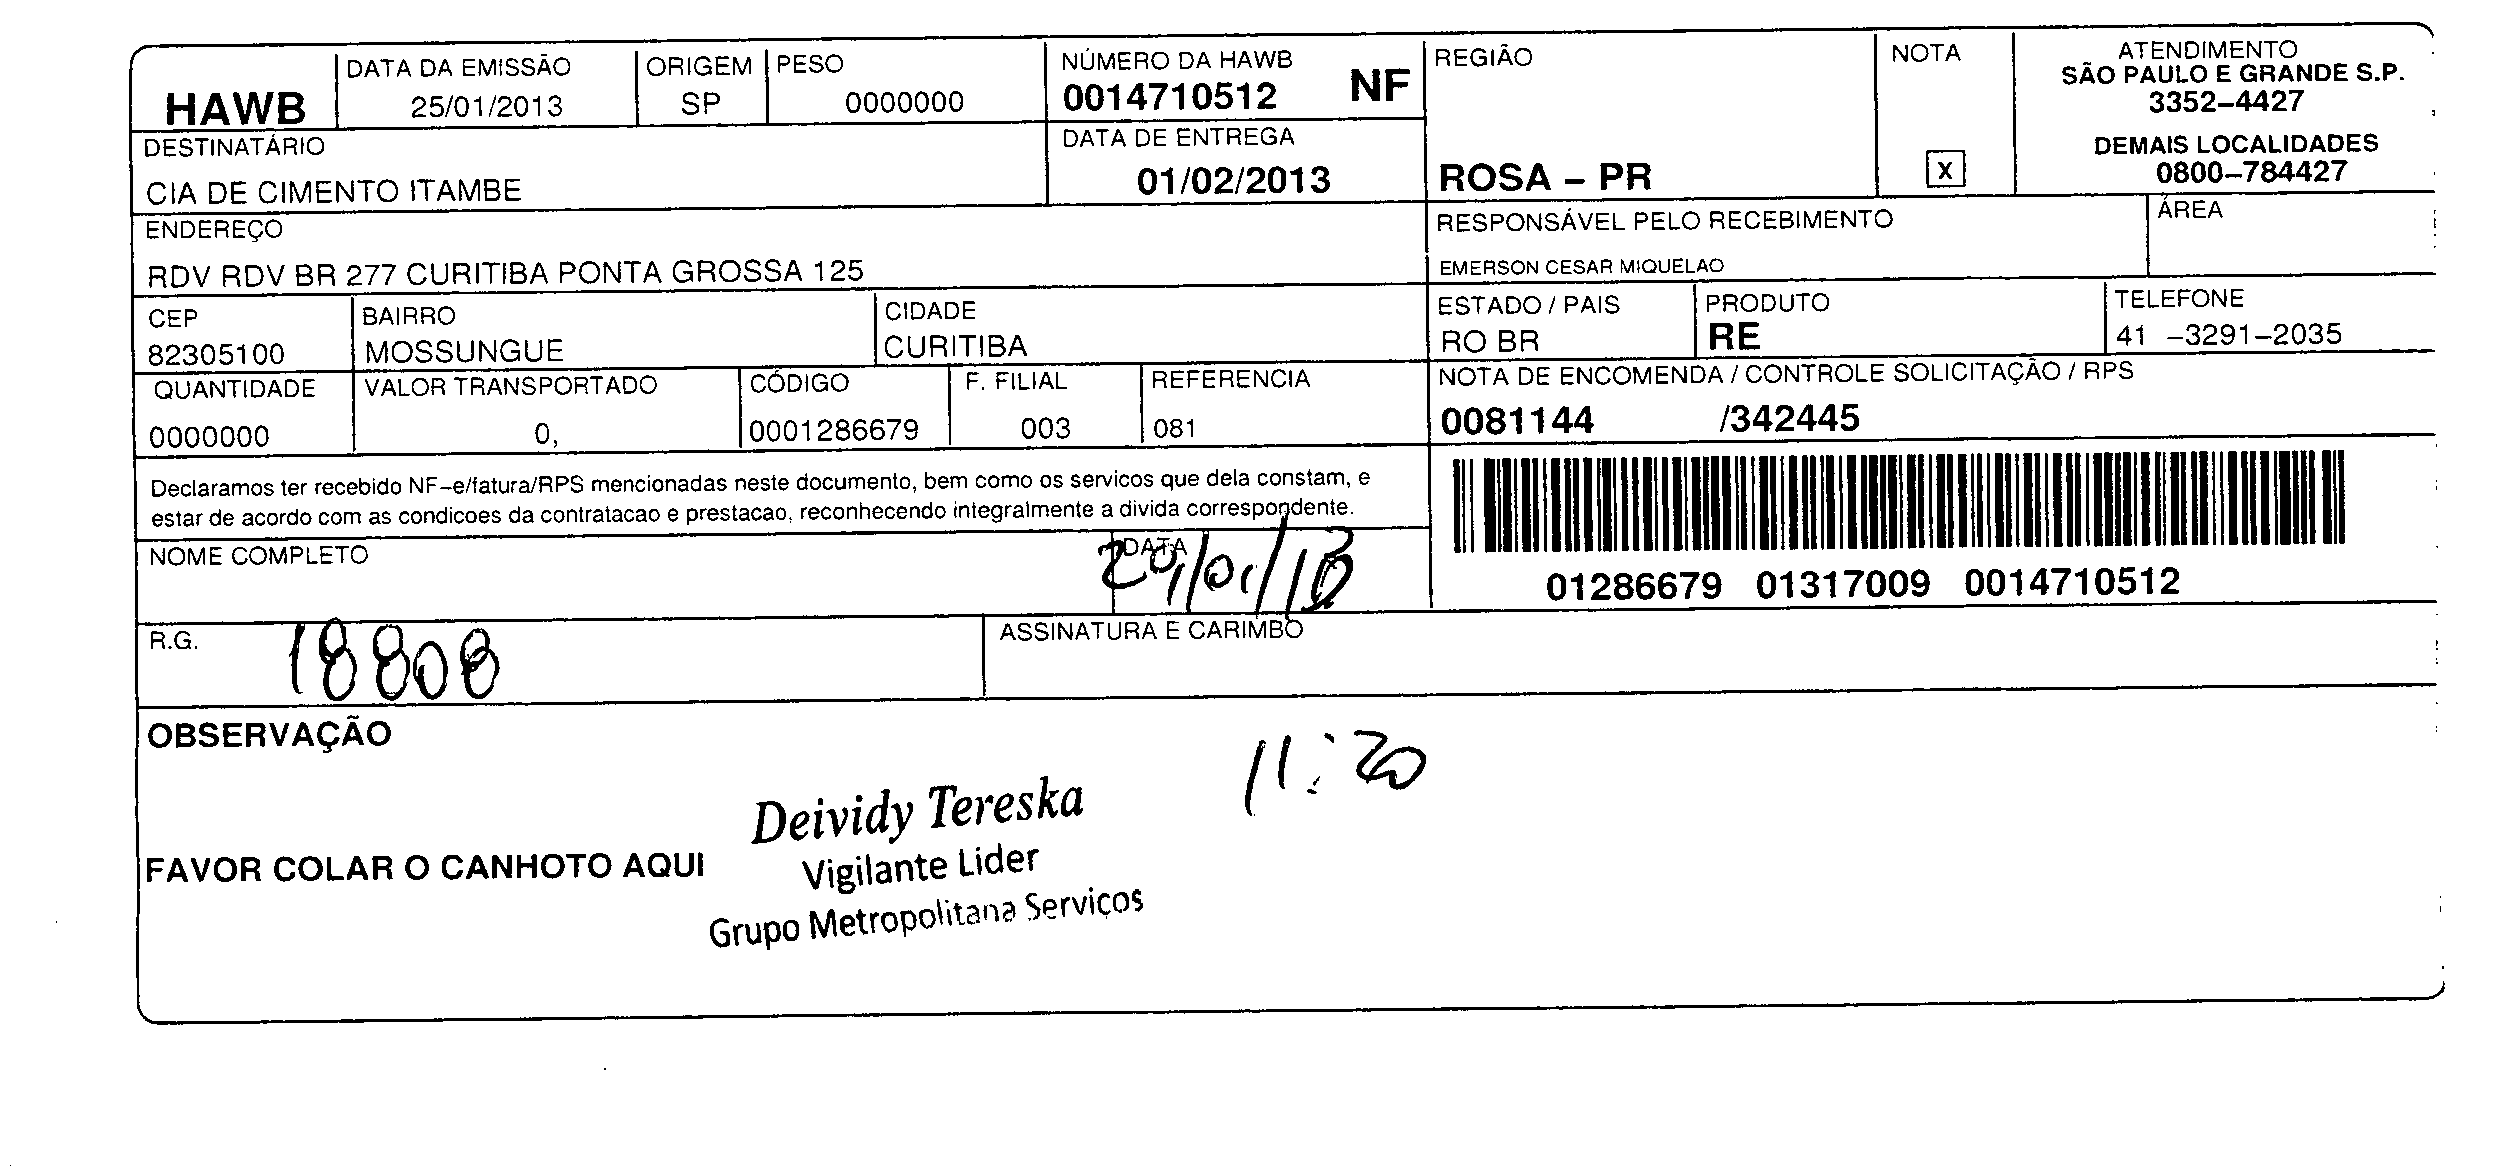 HAWB
DATA DA EMISSÃO
25/01/2013
ORIGEM
SP
PESO
0000000
NÚMERO DA HAWB
0014710512 NF
DATA DE ENTREGA
01/02/2013
REGIÃO
ROSA – PR
NOTA
X
ATENDIMENTO
SÃO PAULO E GRANDE S.P.
3352–4427
DEMAIS LOCALIDADES
0800–784427
DESTINATÁRIO
CIA DE CIMENTO ITAMBE
ENDEREÇO
RDV RDV BR 277 CURITIBA PONTA GROSSA 125
RESPONSÁVEL PELO RECEBIMENTO
EMERSON CESAR MIQUELAO
ÁREA
CEP
82305100
BAIRRO
MOSSUNGUE
CIDADE
CURITIBA
ESTADO / PAIS
RO BR
PRODUTO
RE
TELEFONE
41 –3291–2035
QUANTIDADE
0000000
VALOR TRANSPORTADO
0,
CÓDIGO
0001286679
F. FILIAL
003
REFERENCIA
081
NOTA DE ENCOMENDA / CONTROLE SOLICITAÇÃO / RPS
0081144 /342445
Declaramos ter recebido NF–e/fatura/RPS mencionadas neste documento, bem como os servicos que dela constam, e
estar de acordo com as condicoes da contratacao e prestacao, reconhecendo integralmente a divida correspondente.
01286679 01317009 0014710512
NOME COMPLETO
DATA
29/01/13
R.G.
18808
ASSINATURA E CARIMBO
OBSERVAÇÃO
11:20
Deividy Tereska
Vigilante Lider
Grupo Metropolitana Serviços
FAVOR COLAR O CANHOTO AQUI